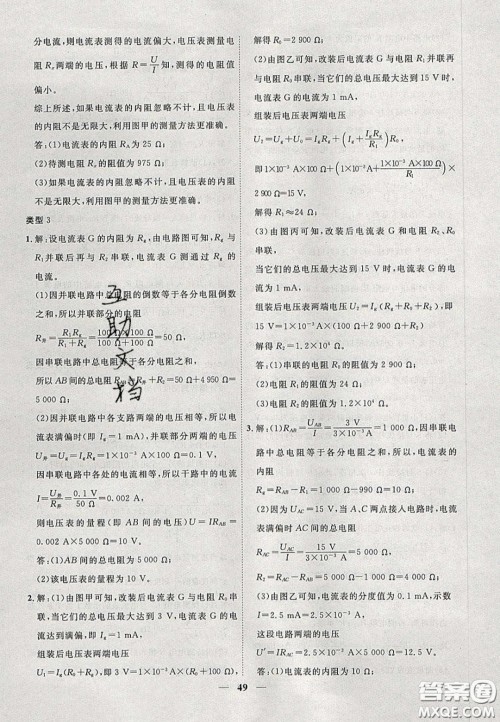 分电流，则电流表测得的电流偏大，电压表测量电
阻 Rₓ 两端的电压，根据 R=U/I 可知，电阻测量值
偏小。
综上所述，如果电流表的内阻忽略不计，且电压表
的内阻不是无限大，利用图甲的测量方法更准确。
答：(1)电流表的内阻为 25 Ω；
(2)待测电阻 Rₓ 的阻值为 975 Ω；
(3)如果电流表的内阻忽略不计，且电压表的内
阻不是无限大，利用图甲的测量方法更准确。
类型 3
1.解：设电流表 G 的内阻为 Rg，由电路图可知，Rg 与
R₁ 并联后再与电阻 R₂ 串联，电流表 G 测通过 Rg 的
电流。
(1)因并联电路中总电阻的倒数等于各分电阻倒数
之和，所以并联部分的电阻
R并=R₁Rg/(R₁+Rg)=100 Ω×100 Ω/(100 Ω+100 Ω)=50 Ω，
因串联电路中总电阻等于各分电阻之和，
所以 AB 间的总电阻 RAB=R并+R₂=50 Ω+4 950 Ω
=5 000 Ω；
(2)因并联电路中各支路两端的电压相等，所以，电
流表满偏时(即 Ig=1 mA)，并联部分两端的电压
U并=Ug=IgRg=1×10⁻³ A×100 Ω=0.1 V，
因串联电路中各处的电流相等，所以干路中的电流
I=U并/R并=0.1 V/50 Ω=0.002 A，
则电压表的量程(即 AB 间的电压)U=IRAB=
0.002 A×5 000 Ω=10 V。
答：(1)AB 间的总电阻为 5 000 Ω；
(2)该电压表的量程为 10 V。
2.解：(1)由图甲可知，改装后电流表 G 与电阻 R₀ 串
联，当它们的总电压最大达到 3 V 时，电流表 G 的
电流达到满偏，即 Ig=1 mA，
组装后电压表两端电压
U₁=Ig(R₀+Rg)，即 3 V=1×10⁻³ A×(R₀+100 Ω)，
解得 R₀=2 900 Ω；
(2)由图乙可知，改装后电流表 G 与电阻 R₁ 并联再
与电阻 R₀ 串联，当它们的总电压最大达到 15 V 时，
电流表 G 的电流为 1 mA，
组装后电压表两端电压
U₂=Ug+U₀=IgRg+(Ig+IgRg/R₁)R₀，
即 1×10⁻³ A×100 Ω+(1×10⁻³ A+1×10⁻³ A×100 Ω/R₁)×
2 900 Ω=15 V，
解得 R₁≈24 Ω；
(3)由图丙可知，改装后电流表 G 与电阻 R₀、R₂
串联，
当它们的总电压最大达到 15 V 时，电流表 G 的电
流为 1 mA，
组装后电压表两端电压 U₃=Ig(R₀+R₂+Rg)，
即 15 V=1×10⁻³ A×(2 900 Ω+R₂+100 Ω)，
解得 R₂=1.2×10⁴ Ω。
答：(1)R₀ 的阻值为 2 900 Ω；
(2)R₁ 的阻值为 24 Ω；
(3)R₂ 的阻值为 1.2×10⁴ Ω。
3.解：(1)RAB=UAB/I=3 V/3×10⁻³ A=1 000 Ω，因串联电路
中总电阻等于各分电阻之和，所以，电流表的
内阻
Rg=RAB−R₁=1 000 Ω−990 Ω=10 Ω；
(2)由图甲可知，当 A、C 两点接入电路时，电流表满
偏时电路中的总电阻
RAC=UAC/I=15 V/3×10⁻³ A=5 000 Ω，
(3)由图乙可知，电流表的分度值为 0.1 mA，示数
I=2.5 mA=2.5×10⁻³ A，
这段电路两端的电压
U′=IRAC=2.5×10⁻³ A×5 000 Ω=12.5 V。
答：(1)电流表的内阻为 10 Ω；
49
互
助
文
档
答案圈
MXQE.COM